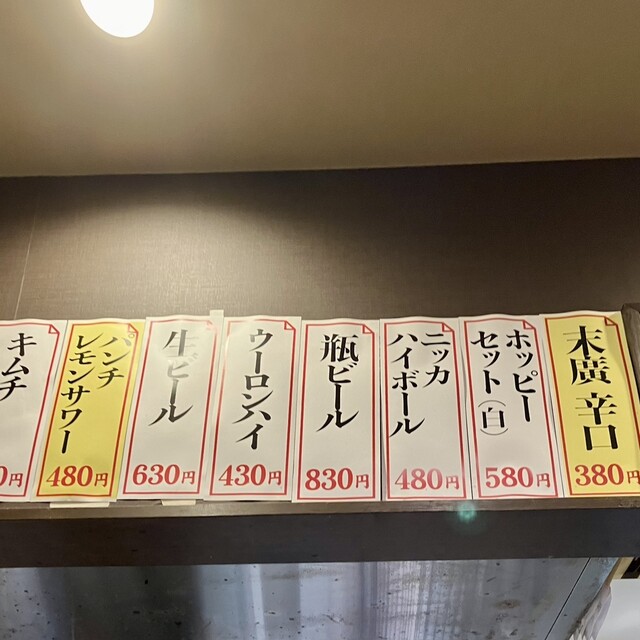 末廣 辛口
380円
ホッピー
セット(白)
580円
ニッカ
ハイボール
480円
瓶ビール
830円
ウーロンハイ
430円
生ビール
630円
パンチ
レモンサワー
480円
キムチ
0円